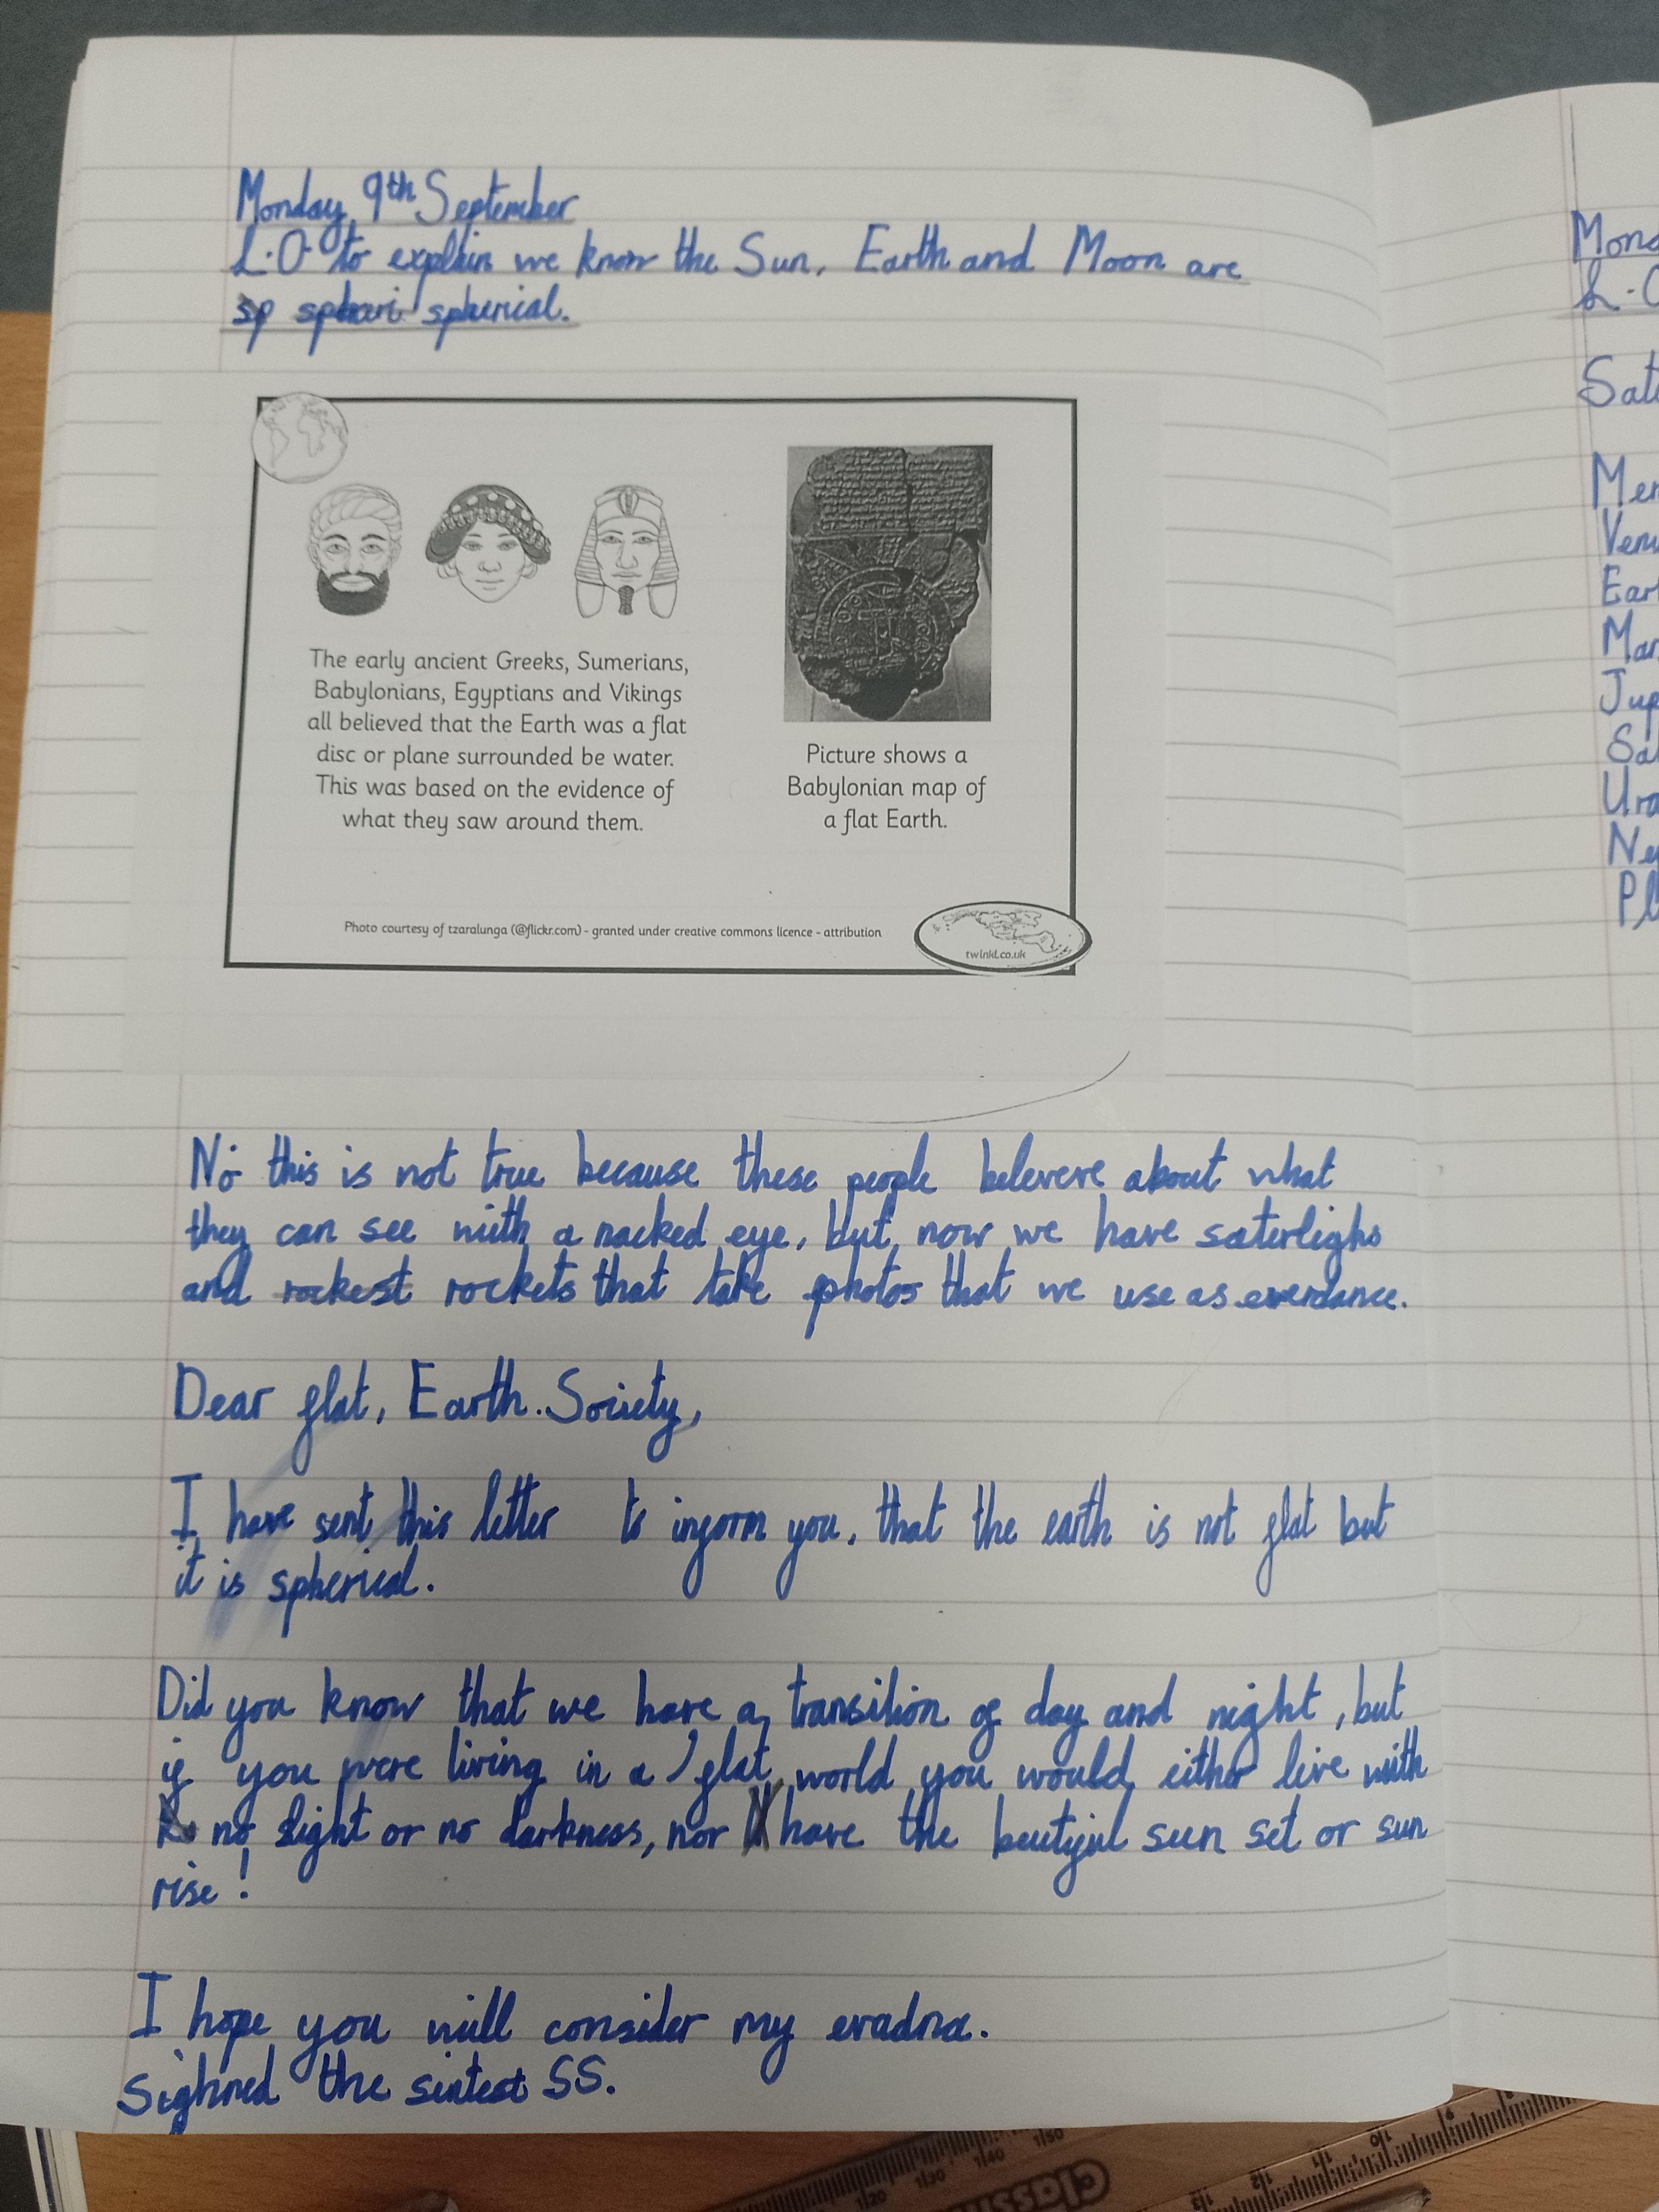 Monday 9th September
L.O to explain we know the Sun, Earth and Moon are
sp sphari spherical.
The early ancient Greeks, Sumerians,
Babylonians, Egyptians and Vikings
all believed that the Earth was a flat
disc or plane surrounded be water.
This was based on the evidence of
what they saw around them.
Picture shows a
Babylonian map of
a flat Earth.
Photo courtesy of tzaralunga (@flickr.com) - granted under creative commons licence - attribution
twinkl.co.uk
No this is not true because these people belevere about what
they can see with a nacked eye, but now we have saterlighs
and rockest rockets that take photos that we use as everdance.
Dear flat, Earth Society,
I have sent this letter to inform you, that the earth is not flat but
it is spherical.
Did you know that we have a transition of day and night, but
if you were living in a flat world you would either live with
no light or no darkness, nor have the beutiful sun set or sun
rise!
I hope you will consider my evadna.
Sighned the sintest SS.
Mond
L.O
Sat
Mer
Venu
Ear
Mar
Jup
Sa
Ura
Ne
Pl
1:20
1:30
1:40
1:50